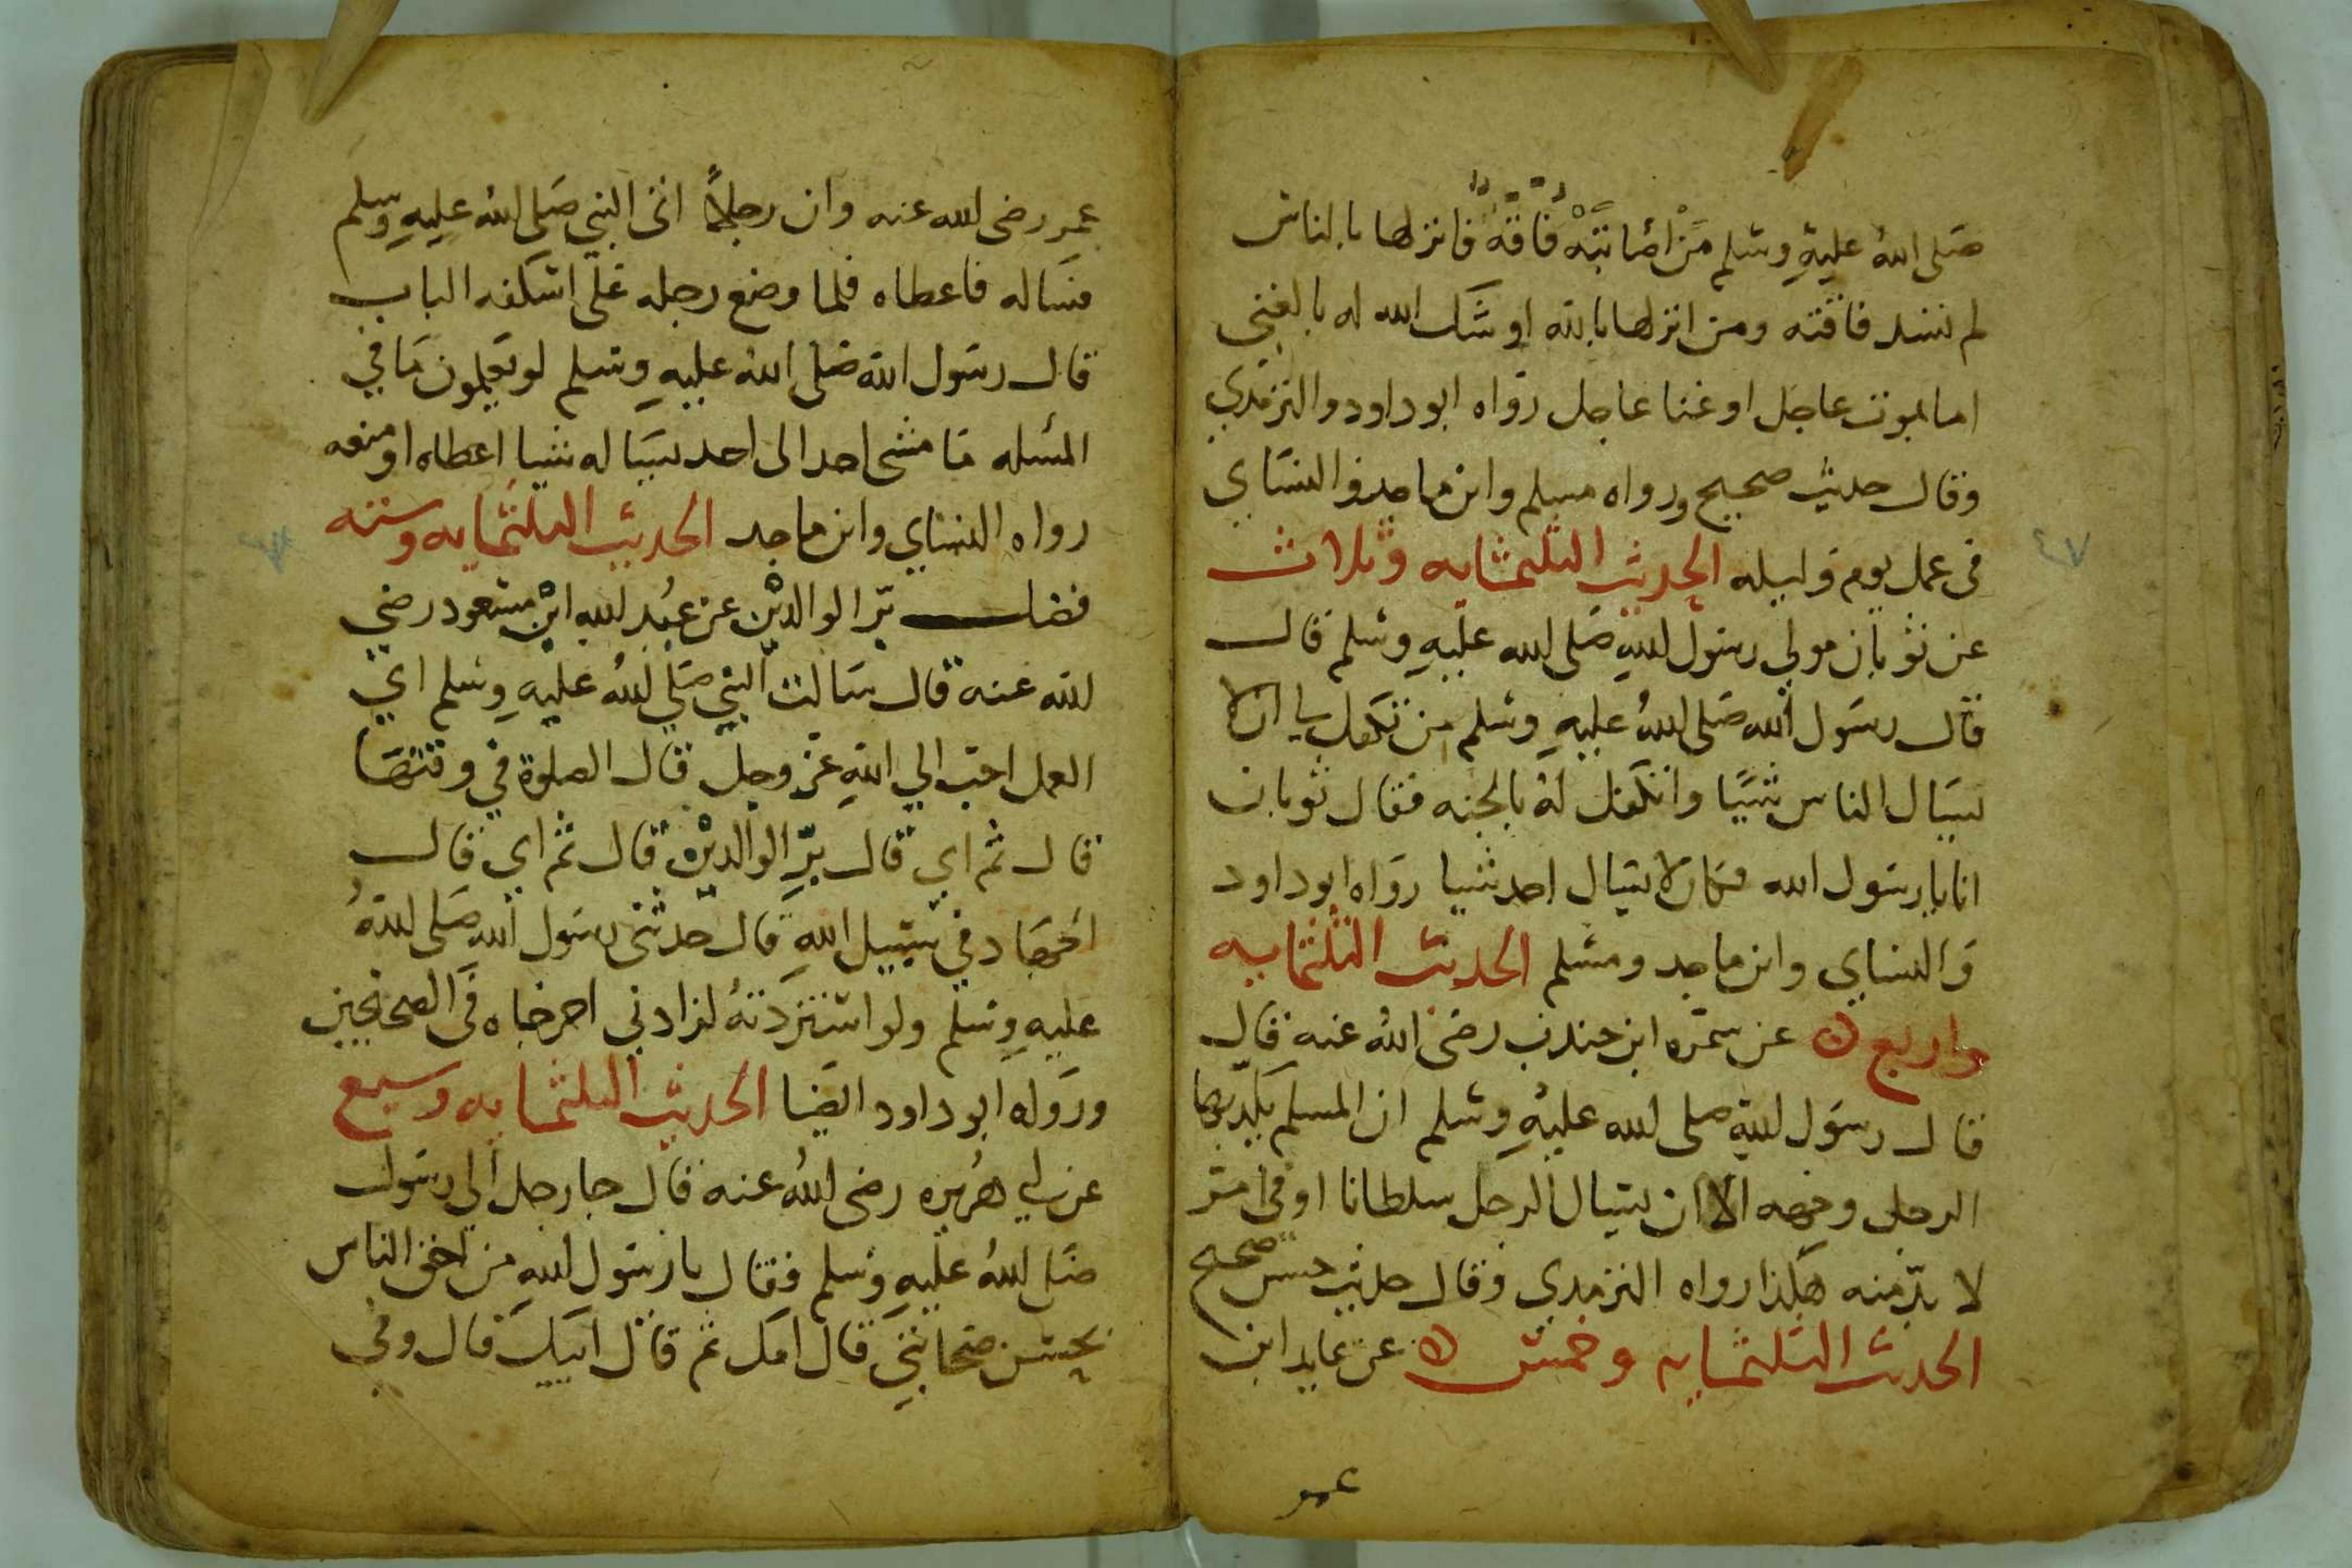 صَلى اللهُ عليهِ وسَلم مَنْ اصَابَتَهْ فَاقَةٌ فانزلها بالناس
لم تسد فاقته ومن انزلها بالله اوشَك الله له بالغني
اما بموت عاجل او غنا عاجل رَواه ابو داود والترمذي
وقال حديث صحيح ورواه مسلم وابن ماجد والنسَاي
في عمل يوم وليله الحديث الثلثمايه وثلاث
عن ثوبان مولي رسول اللهِ صَلى الله عليهِ وسَلم قال
قال رسَول الله صَلى اللهُ عليهِ وسَلم من تكفل لي ان لا
يسَال الناس شيَيا واتكفل لهُ بالجنه فقال ثوبان
انا يا رسَول الله فكان لا يسَال احد شيا رواه ابو داود
وَالنساي وابن ماجد ومسَلم الحديث الثلثمايه
واربع عن سمَره ابن جندب رضى اللهُ عنه قال
قال رسَول اللهِ صلى الله عليهِ وسَلم ان المسلم يكد بها
الرجل وجهه الا ان يسَال الرجل سلطانا او في امر
لا بدّ منه هكذا رواه الترمدي وقال حديث حسن صحيح
الحديث الثلثمايه وخمسَ عن عايد ابن
عمر
عمر رضى الله عنه وان رجلاً اتى النبي صَلى اللهُ عليهِ وسلم
فسَاله فاعطاه فلما وضع رجله عَلى اسَكفه الباب
قال رسَول الله صَلى اللهُ عليهِ وسَلم لو تعَلمون مَا في
المسَله مَا مشى احد الى احد يسَاله شيا اعطاه او منعه
رواه النسَاي وابن ماجد الحديث الثلثمايه وسته
فضل بَر الوالديْن عن عَبْد اللهِ ابْن مسَعود رضي
الله عنه قال سَالت النبي صَلي اللهُ عليهِ وسَلم اي
العمل احَب الي اللهِ عَز وجل قال الصلوة في وقتهَا
قال ثم اي قال برِّ الوالديْن قال ثم اي قال
الجهَاد في سَبيل اللهِ قال حدثني رسَول الله صَلى اللهُ
عليهِ وسَلم ولو اسَتزدتهُ لزادني اخرجاه فَى الصحيحين
ورَواه ابو داود ايضَا الحديث الثلثمايه وسبع
عن ابي هُريره رضى اللهُ عنه قال جا رجل الي رسَول
صَلى اللهُ عليهِ وسَلم فقال يا رسَول اللهِ من احَق الناس
بحسَن صَحابتي قال امك ثم قال ابيك قال وفي